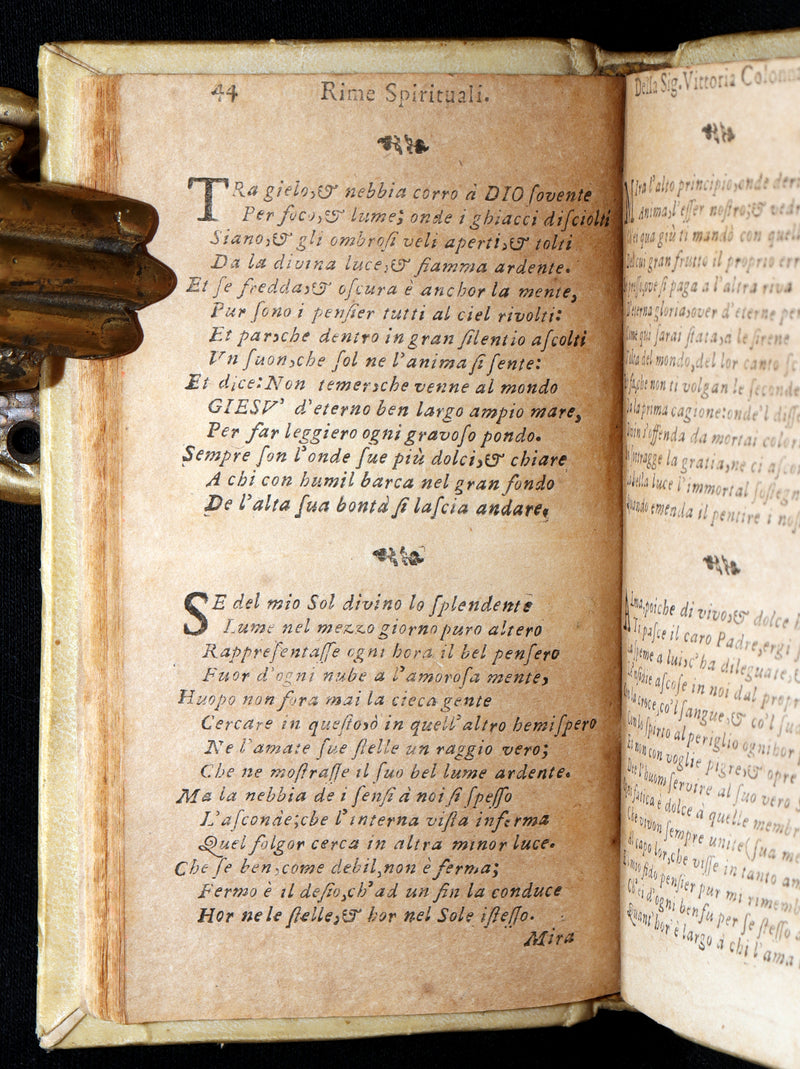 44 Rime Spirituali.
TRa gielo,& nebbia corro à DIO ſovente
Per foco,& lume; onde i ghiacci diſciolti
Siano,& gli ombroſi veli aperti,& tolti
Da la divina luce,& fiamma ardente.
Et ſe fredda,& oſcura è anchor la mente,
Pur ſono i penſier tutti al ciel rivolti:
Et par,che dentro in gran ſilentio aſcolti
Vn ſuon,che ſol ne l'anima ſi ſente:
Et dice:Non temer,che venne al mondo
GIESV' d'eterno ben largo ampio mare,
Per far leggiero ogni gravoſo pondo.
Sempre ſon l'onde ſue più dolci,& chiare
A chi con humil barca nel gran fondo
De l'alta ſua bontà ſi laſcia andare.
SE del mio Sol divino lo ſplendente
Lume nel mezzo giorno puro altero
Rappreſentaſſe ogni hora il bel penſero
Fuor d'ogni nube a l'amoroſa mente,
Huopo non fora mai la cieca gente
Cercare in queſto,ò in quell'altro hemiſpero
Ne l'amate ſue ſtelle un raggio vero;
Che ne moſtraſſe il ſuo bel lume ardente.
Ma la nebbia de i ſenſi à noi ſi ſpeſſo
L'aſconde;che l'interna viſta inferma
Quel folgor cerca in altra minor luce.
Che ſe ben,come debil,non è ferma;
Fermo è il deſio,ch'ad un fin la conduce
Hor ne le ſtelle,& hor nel Sole iſteſſo.
Mira
Della Sig. Vittoria Colonna
Mira l'alto principio,onde
Anima,l'eſſer noſtro;&
qua giù ti mandò con
cui gran frutto il proprio
ſi paga a l'altra riva
eterna gloria,over d'eterne
qui ſarai ſtata,a le ſirene
del mondo,del lor canto
che non ti volgan le ſeconde
la prima cagione:onde'l
l'offenda da mortal
la gratia,ne ci
bella luce l'immortal
Quando emenda il pentire i
Alma,poiche di vivo,& dolce
Ti paſce il caro Padre,ergi
a lui;c'ha dileguate,&
aſcoſe in noi dal
croce,co'l ſangue,& co'l
ſpirto al periglio ogni hor
non con voglie pigre,& opre
l'huom ſervire al ſuo vero
fatica è dolce à quelle
Che vivon ſempre unite(ſua
capo lor,che viſſe in tanto
fido penſier pur mi
d'ogni ben fu per ſe ſteſſo
Quant'hor è largo à chi l'ama